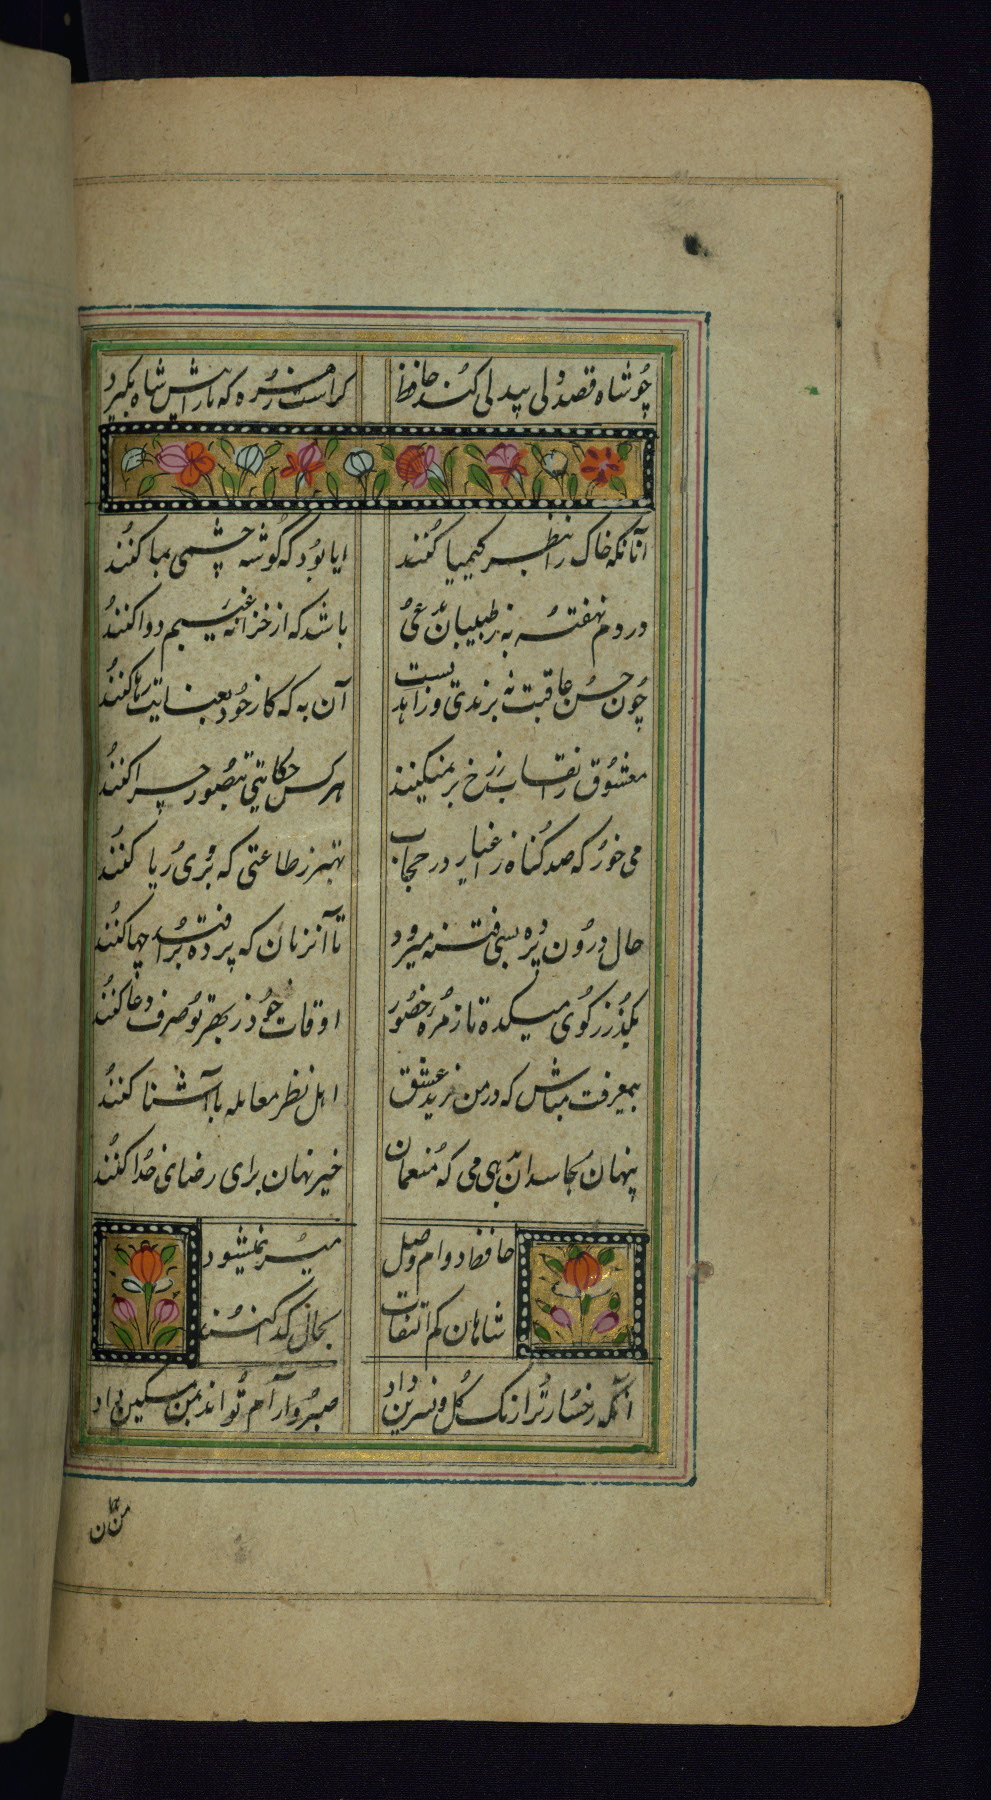 چو شاه قصد ولی بیدلی کند حافظ
کراست زهره که باز این شاه بگیرد
آنانکه خاک را بنظر کیمیا کنند
ایا بود که گوشه چشمی بما کنند
دردم نهفته به ز طبیبان مدعی
باشد که از خزانه غیبم دوا کنند
چون حسن عاقبت نه برندی و زاهدیست
آن به که کار خود بعنایت رها کنند
معشوق را نقاب ز رخ بر نمیکشند
هر کس حکایتی بتصور چرا کنند
می خور که صد گناه ز اغیار در حجاب
بهتر ز طاعتی که بروی ریا کنند
حال درون پرده بسی فتنه میرود
تا آنزمان که پرده بر افتد چها کنند
بگذر ز کوی میکده تا زمره حضور
اوقات خود ز بهر تو صرف دعا کنند
بیمعرفت مباش که در من یزید عشق
اهل نظر معامله با آشنا کنند
پنهان ز حاسدان بدهی می که منعمان
خیر نهان برای رضای خدا کنند
حافظ دوام وصل
میسر نمیشود
شاهان کم التفات
بحال گدا کنند
آنکه رخسار ترا رنگ گل و نسرین داد
صبر و آرام تواند بمن مسکین داد
من همان